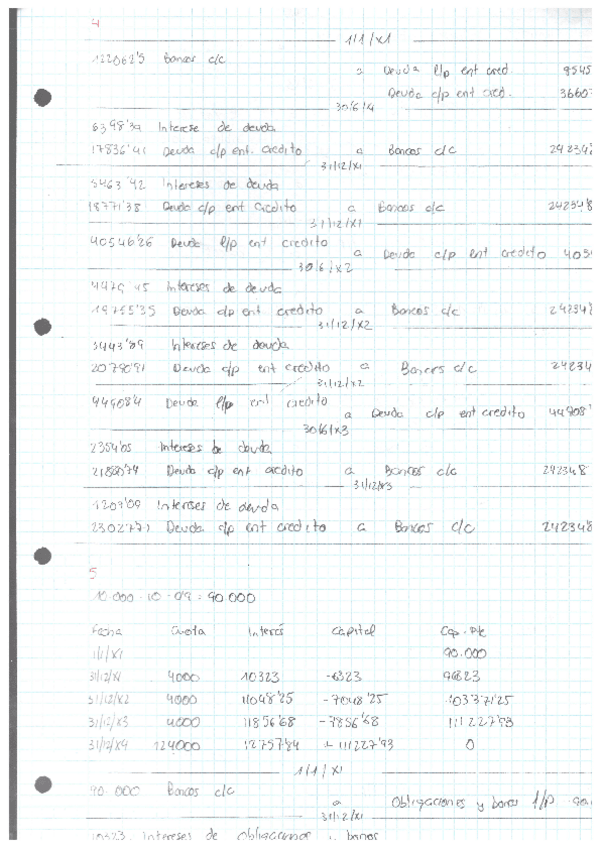 4
1/1/X1
122062'5 Bancos c/c
a Deuda l/p ent cred. 8545
Deuda c/p ent cred. 3660
30/6/
6398'39 Interese de deuda
17836'41 Deuda c/p ent. credito a Bancos c/c 24234'8
31/12/X1
5463'42 Intereses de deuda
18771'38 Deuda c/p ent credito a Bancos c/c 24234'8
31/12/X1
40546'26 Deuda l/p ent credito
a Deuda c/p ent credito 405
30/6/X2
4479'45 Intereses de deuda
19755'35 Deuda c/p ent credito a Bancos c/c 24234'
31/12/X2
3443'89 Intereses de deuda
20790'91 Deuda c/p ent credito a Bancos c/c 24234
31/12/X2
44908'4 Deuda l/p ent credito
a Deuda c/p ent credito 44908'
30/6/X3
2354'05 Intereses de deuda
21880'74 Deuda c/p ent credito a Bancos c/c 24234'8
31/12/X3
1207'09 Intereses de deuda
23027'71 Deuda c/p ent credito a Bancos c/c 24234'8
5
10.000 · 10 · 0'9 = 90.000
Fecha Cuota Interés Capital Cap. Pte
1/1/X1 90.000
31/12/X1 4000 10323 -6323 96323
31/12/X2 4000 11048'25 -7048'25 103371'25
31/12/X3 4000 11856'68 -7856'68 111227'93
31/12/X4 124.000 12757'84 + 111227'93 0
1/1/X1
90.000 Bancos c/c
a Obligaciones y bonos l/p
31/12/X1
10323 Intereses de obligaciones y bonos